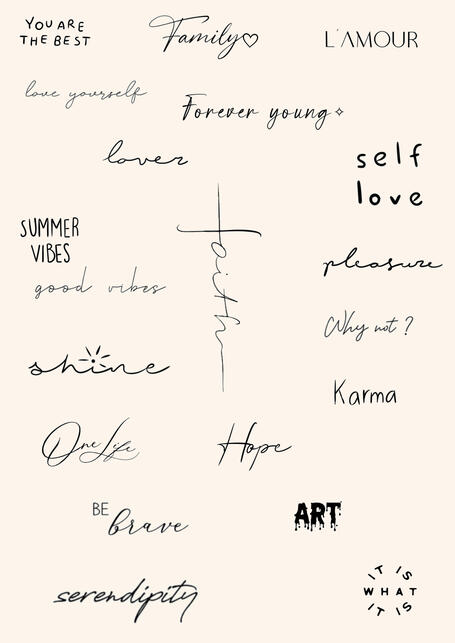 YOU ARE
THE BEST
Family
L'AMOUR
love yourself
Forever young
lover
self
love
faith
SUMMER
VIBES
good vibes
pleasure
Why not ?
shine
Karma
One Life
Hope
BE
brave
ART
serendipity
IT IS
WHAT
IT IS